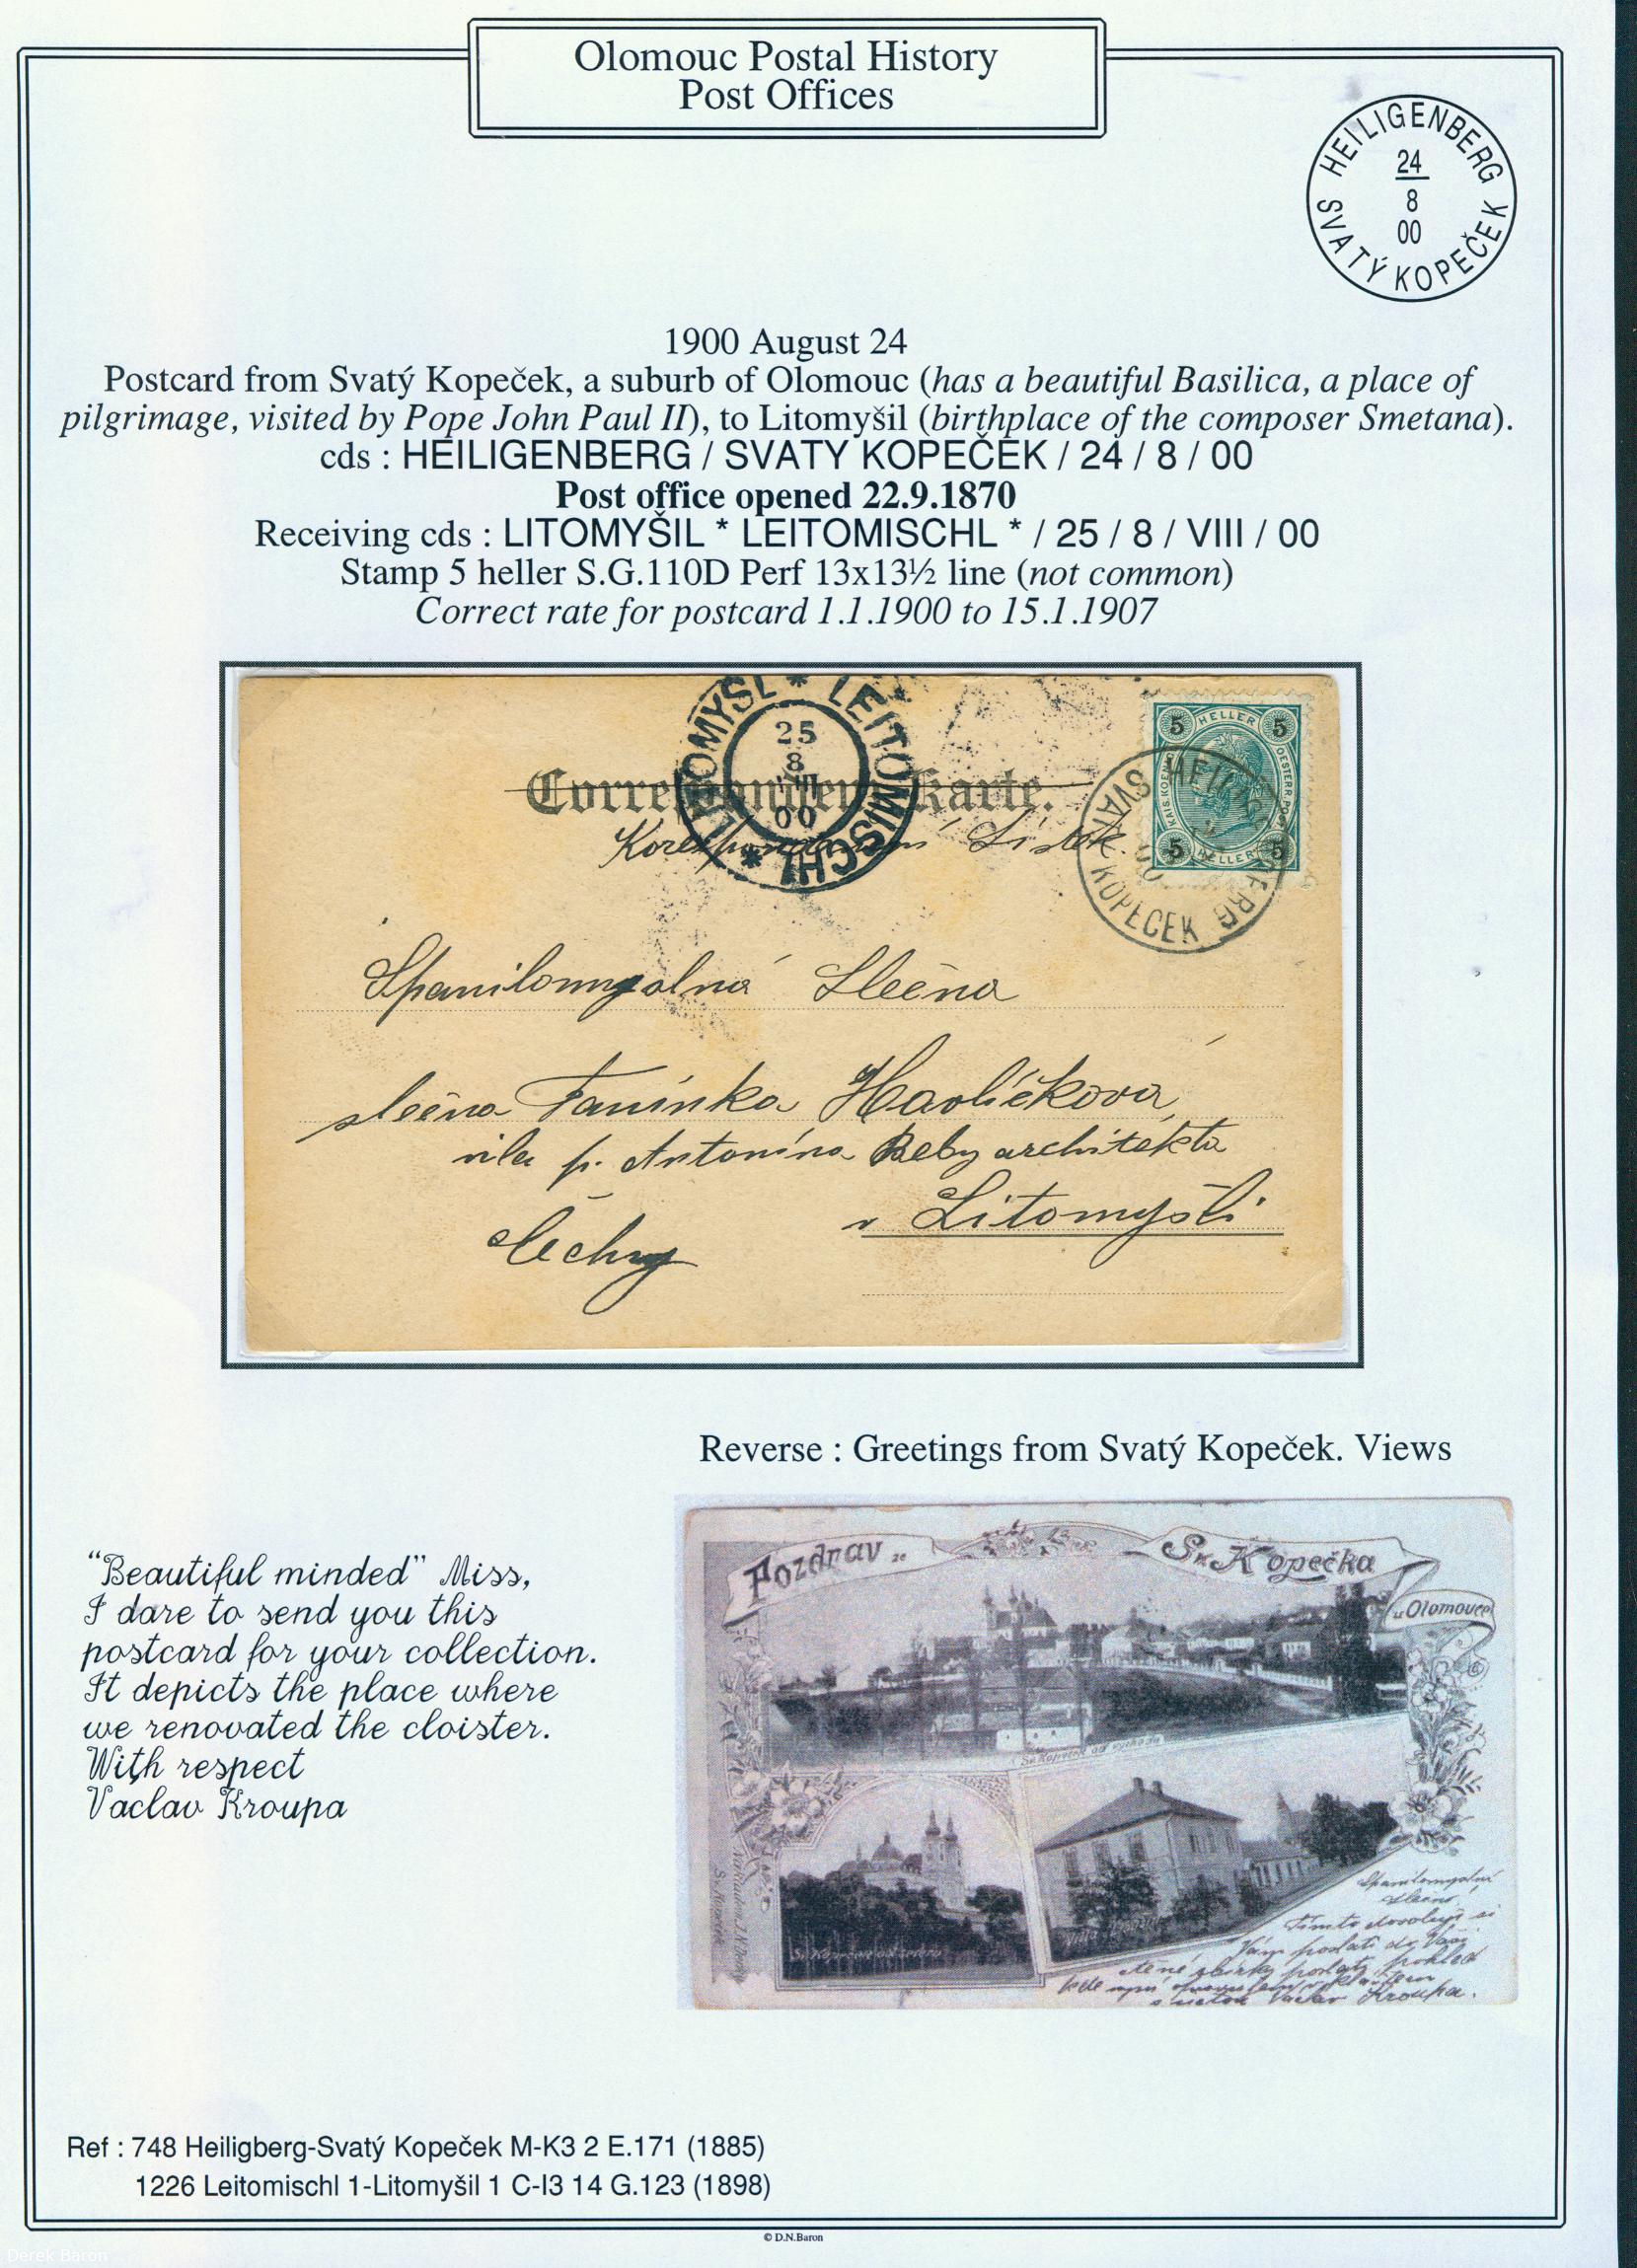 Olomouc Postal History
Post Offices
HEILIGENBERG
24
8
00
SVATÝ KOPEČEK
1900 August 24
Postcard from Svatý Kopeček, a suburb of Olomouc (has a beautiful Basilica, a place of
pilgrimage, visited by Pope John Paul II), to Litomyšil (birthplace of the composer Smetana).
cds : HEILIGENBERG / SVATY KOPEČEK / 24 / 8 / 00
Post office opened 22.9.1870
Receiving cds : LITOMYŠIL * LEITOMISCHL * / 25 / 8 / VIII / 00
Stamp 5 heller S.G.110D Perf 13x13½ line (not common)
Correct rate for postcard 1.1.1900 to 15.1.1907
LITOMYŠL * LEITOMISCHL *
25
8
VIII
00
5 HELLER 5
KAIS.KOENIGL. OESTERR.POST
5 HELLER 5
HEILIGENBERG
SVATÝ KOPEČEK
Correspondenz-Karte.
Korespondenční Lístek.
Spanilomyslná Slečna
slečna Fanínka Havlíčková,
vila p. Antonína Beby architekta
v Litomyšli
Čechy
Reverse : Greetings from Svatý Kopeček. Views
Pozdrav ze Sv. Kopečka
u Olomouce
Sv. Kopeček od východu
Sv. Kopeček od severu
Villa
Spanilomyslná
slečno!
Tímto dovoluji si
Vám poslati do Vaší
ctěné sbírky pohled
kde
s úctou Václav Kroupa.
"Beautiful minded" Miss,
I dare to send you this
postcard for your collection.
It depicts the place where
we renovated the cloister.
With respect
Vaclav Kroupa
Ref : 748 Heiligberg-Svatý Kopeček M-K3 2 E.171 (1885)
1226 Leitomischl 1-Litomyšil 1 C-I3 14 G.123 (1898)
© D.N.Baron
Derek Baron